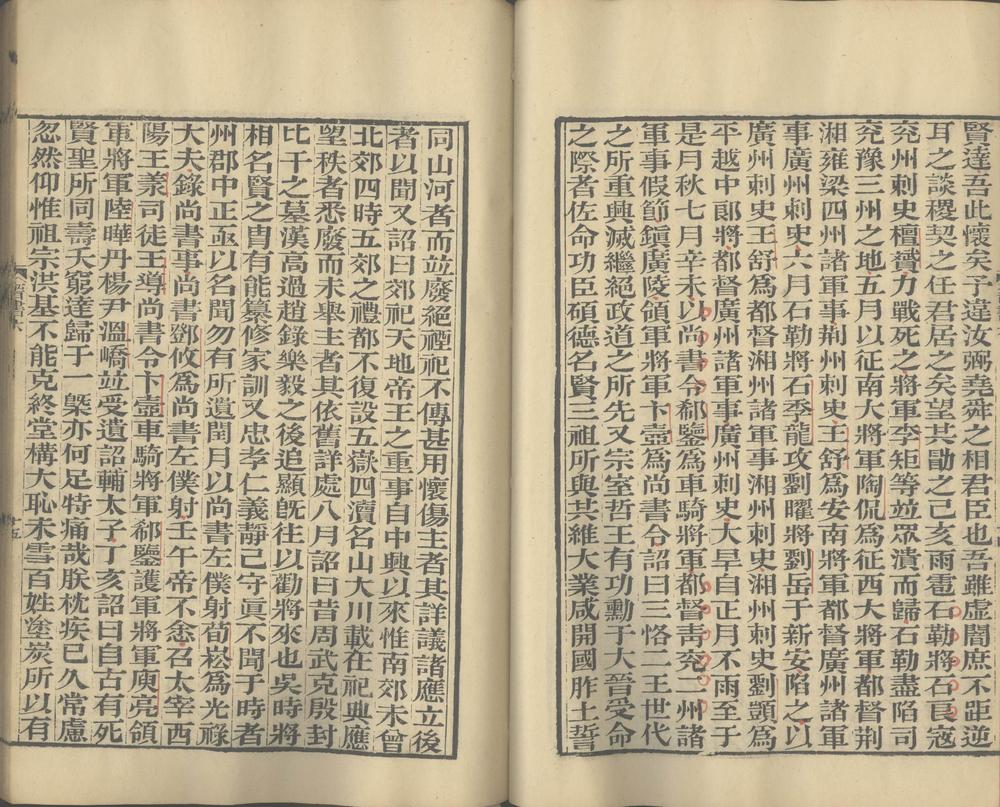 賢達吾此懷矣予違汝弼堯舜之相君臣也吾雖虛闇庶不距逆
耳之談稷契之任君居之矣望共勖之己亥雨雹石勒將石良寇
兗州刺史檀贇力戰死之將軍李矩等竝眾潰而歸石勒盡陷司
兗豫三州之地五月以征南大將軍陶侃爲征西大將軍都督荆
湘雍梁四州諸軍事荆州刺史王舒爲安南將軍都督廣州諸軍
事廣州刺史六月石勒將石季龍攻劉曜將劉岳于新安陷之以
廣州刺史王舒爲都督湘州諸軍事湘州刺史湘州刺史劉顗爲
平越中郎將都督廣州諸軍事廣州刺史大旱自正月不雨至于
是月秋七月辛未以尚書令郗鑒爲車騎將軍都督青兗二州諸
軍事假節鎮廣陵領軍將軍卞壼爲尚書令詔曰三恪二王世代
之所重興滅繼絕政道之所先又宗室哲王有功勳于大晉受命
之際者佐命功臣碩德名賢三祖所與共維大業咸開國胙土誓
同山河者而竝廢絕禋祀不傳甚用懷傷主者其詳議諸應立後
者以聞又詔曰郊祀天地帝王之重事自中興以來惟南郊未曾
北郊四時五郊之禮都不復設五嶽四瀆名山大川載在祀典應
望秩者悉廢而未舉主者其依舊詳處八月詔曰昔周武克殷封
比干之墓漢高過趙錄樂毅之後追顯旣往以勸將來也吳時將
相名賢之冑有能纂修家訓又忠孝仁義靜己守眞不聞于時者
州郡中正亟以名聞勿有所遺閏月以尚書左僕射荀崧爲光祿
大夫錄尚書事尚書鄧攸爲尚書左僕射壬午帝不悆召太宰西
陽王羕司徒王導尚書令卞壼車騎將軍郗鑒護軍將軍庾亮領
軍將軍陸曄丹楊尹溫嶠竝受遺詔輔太子丁亥詔曰自古有死
賢聖所同壽夭窮達歸于一槩亦何足特痛哉朕枕疾已久常慮
忽然仰惟祖宗洪基不能克終堂構大恥未雪百姓塗炭所以有